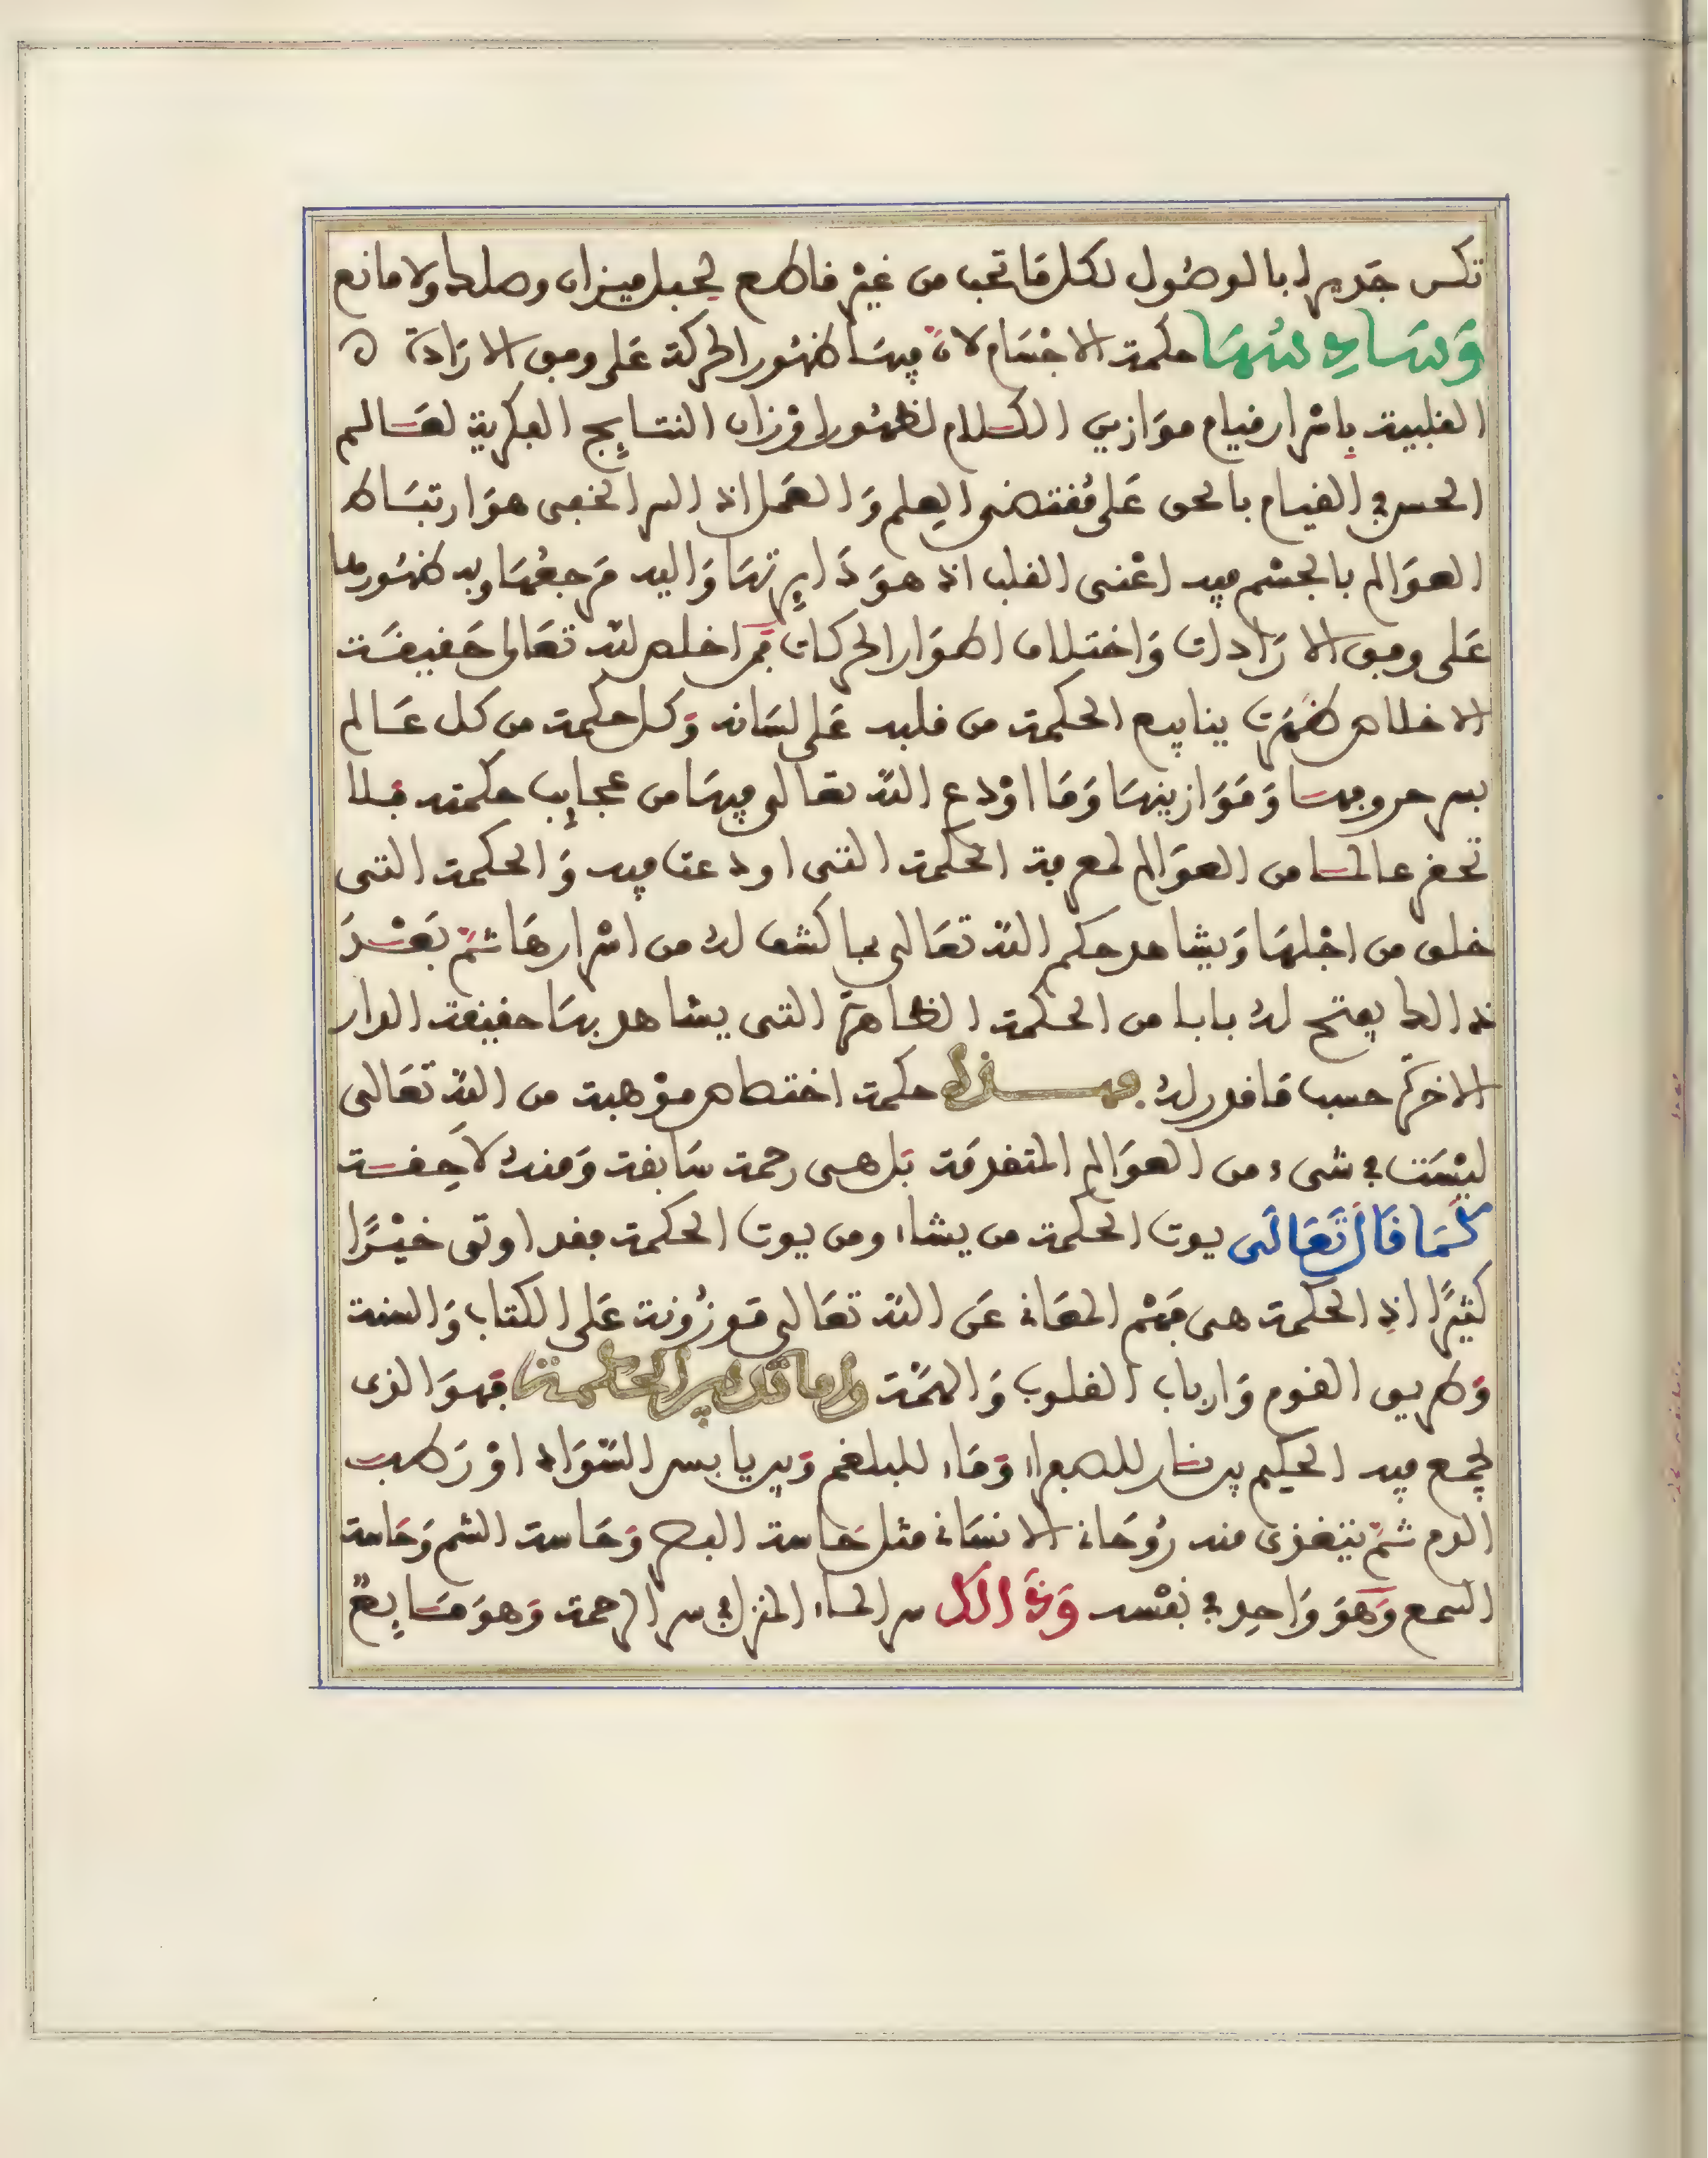 تكن جديرا بالوصول لكل ما تحب من غير قاطع لحبل ميزان وصلك ولا مانع
وسادسها حكمة الاجسام لان فيها ظهور الحركة على وفق الارادة
القلبية باسرار قيام موازين الكلام لظهور اوزان النتايج الفكرية لعالم
الحس في القيام بالحق على مقتضى العلم والعمل اذ السر الخفى هو ارتباط
العوالم بالجسم فيه اعنى القلب اذ هو دايرتها واليه مرجعها وبه ظهورها
على وفق الارادات واختلاف اطوار الحركات فمن اخلص لله تعالى حقيقة
الاخلاص ظهرت ينابيع الحكمة من قلبه على لسانه وكل حكمة من كل عالم
بسر حروفها وموازينها وما اودع الله تعالى فيها من عجايب حكمته فلا
تحقر عالما من العوالم لمعرفة الحكمة التى اودعت فيه والحكمة التى
خلق من اجلها ويشاهد حكم الله تعالى بما كشف له من اسرارها ثم بعد
ذالك يفتح له بابا من الحكمة الظاهرة التى يشاهد بها حقيقة الدار
الاخرة حسب ما قدر له فهذه حكمة اختصاص موهبة من الله تعالى
ليست في شىء من العوالم المتقدمة بل هى رحمة سابقة ومنه لاحقة
كما قال تعالى يوت الحكمة من يشاء ومن يوت الحكمة فقد اوتى خيرا
كثيرا اذ الحكمة هى فهم المعانى عن الله تعالى موزونة على الكتاب والسنة
وطريق القوم وارباب القلوب والهمة واما تدبير الحكمة فهو الذى
يجمع فيه الحكيم بين نار للصفراء وماء للبلغم وبين يابس السواد او رطب
الدم ثم يتغذى منه روحانى الانسانى مثل حاسة البصر وحاسة الشم وحاسة
السمع وهو واحد في نفسه وذالك سر الماء المنزل في سر الرحمة وهو مايع